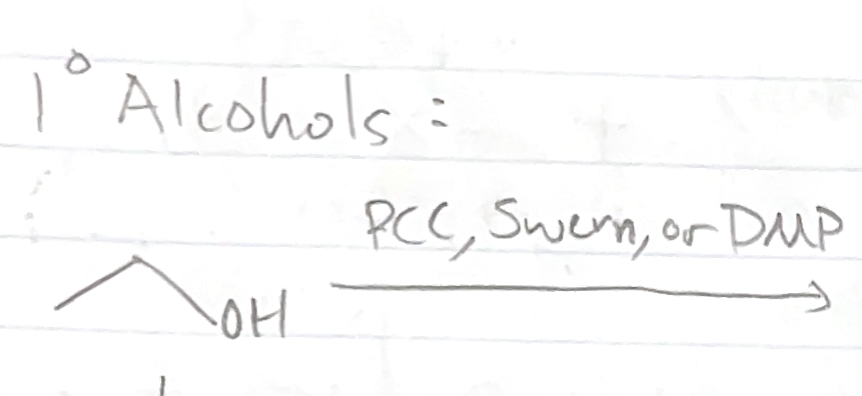 1° Alcohols:
PCC, Swern, or DMP
OH